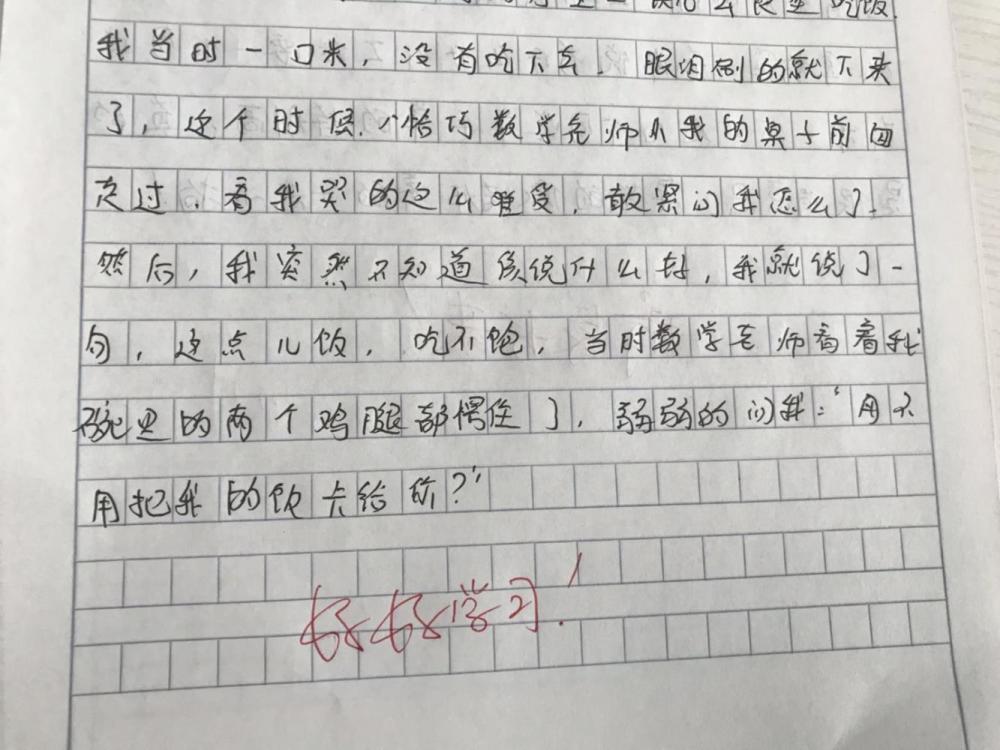 吃饭
我当时一口米，没有吃下去，眼泪刷的就下来
了，这个时候，恰巧数学老师从我的桌子前面
走过，看我哭的这么难受，赶紧问我怎么了，
然后，我突然不知道该说什么好，我就说了一
句，这点儿饭，吃不饱，当时数学老师看着我
碗里的两个鸡腿都愣住了，弱弱的问我：“用不
用把我的饭卡给你？”
好好学习！